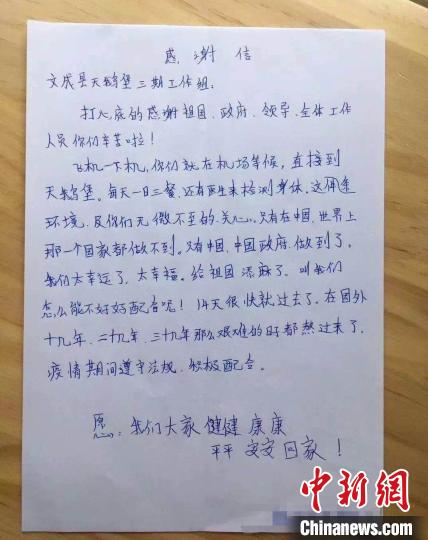 感谢信
文成县天鹅堡三期工作组:
打心底的感谢祖国、政府、领导、全体工作
人员你们辛苦啦!
飞机一下机,你们就在机场等候,直接到
天鹅堡。每天一日三餐,还有医生来检测身体,这
环境,及你们无微不至的关心,只有在中国,世界上
那一个国家都做不到。只有中国,中国政府做到了。
我们太幸运了,太幸福。给祖国添麻了,叫我们
怎么能不好好配合呢!14天很快就过去了。在国外
十几年、二十几年、三十几年那么艰难的时都熬过来了。
疫情期间遵守法规,积极配合。
愿:我们大家健健康康
平平安安回家!
中新网
Chinanews.com